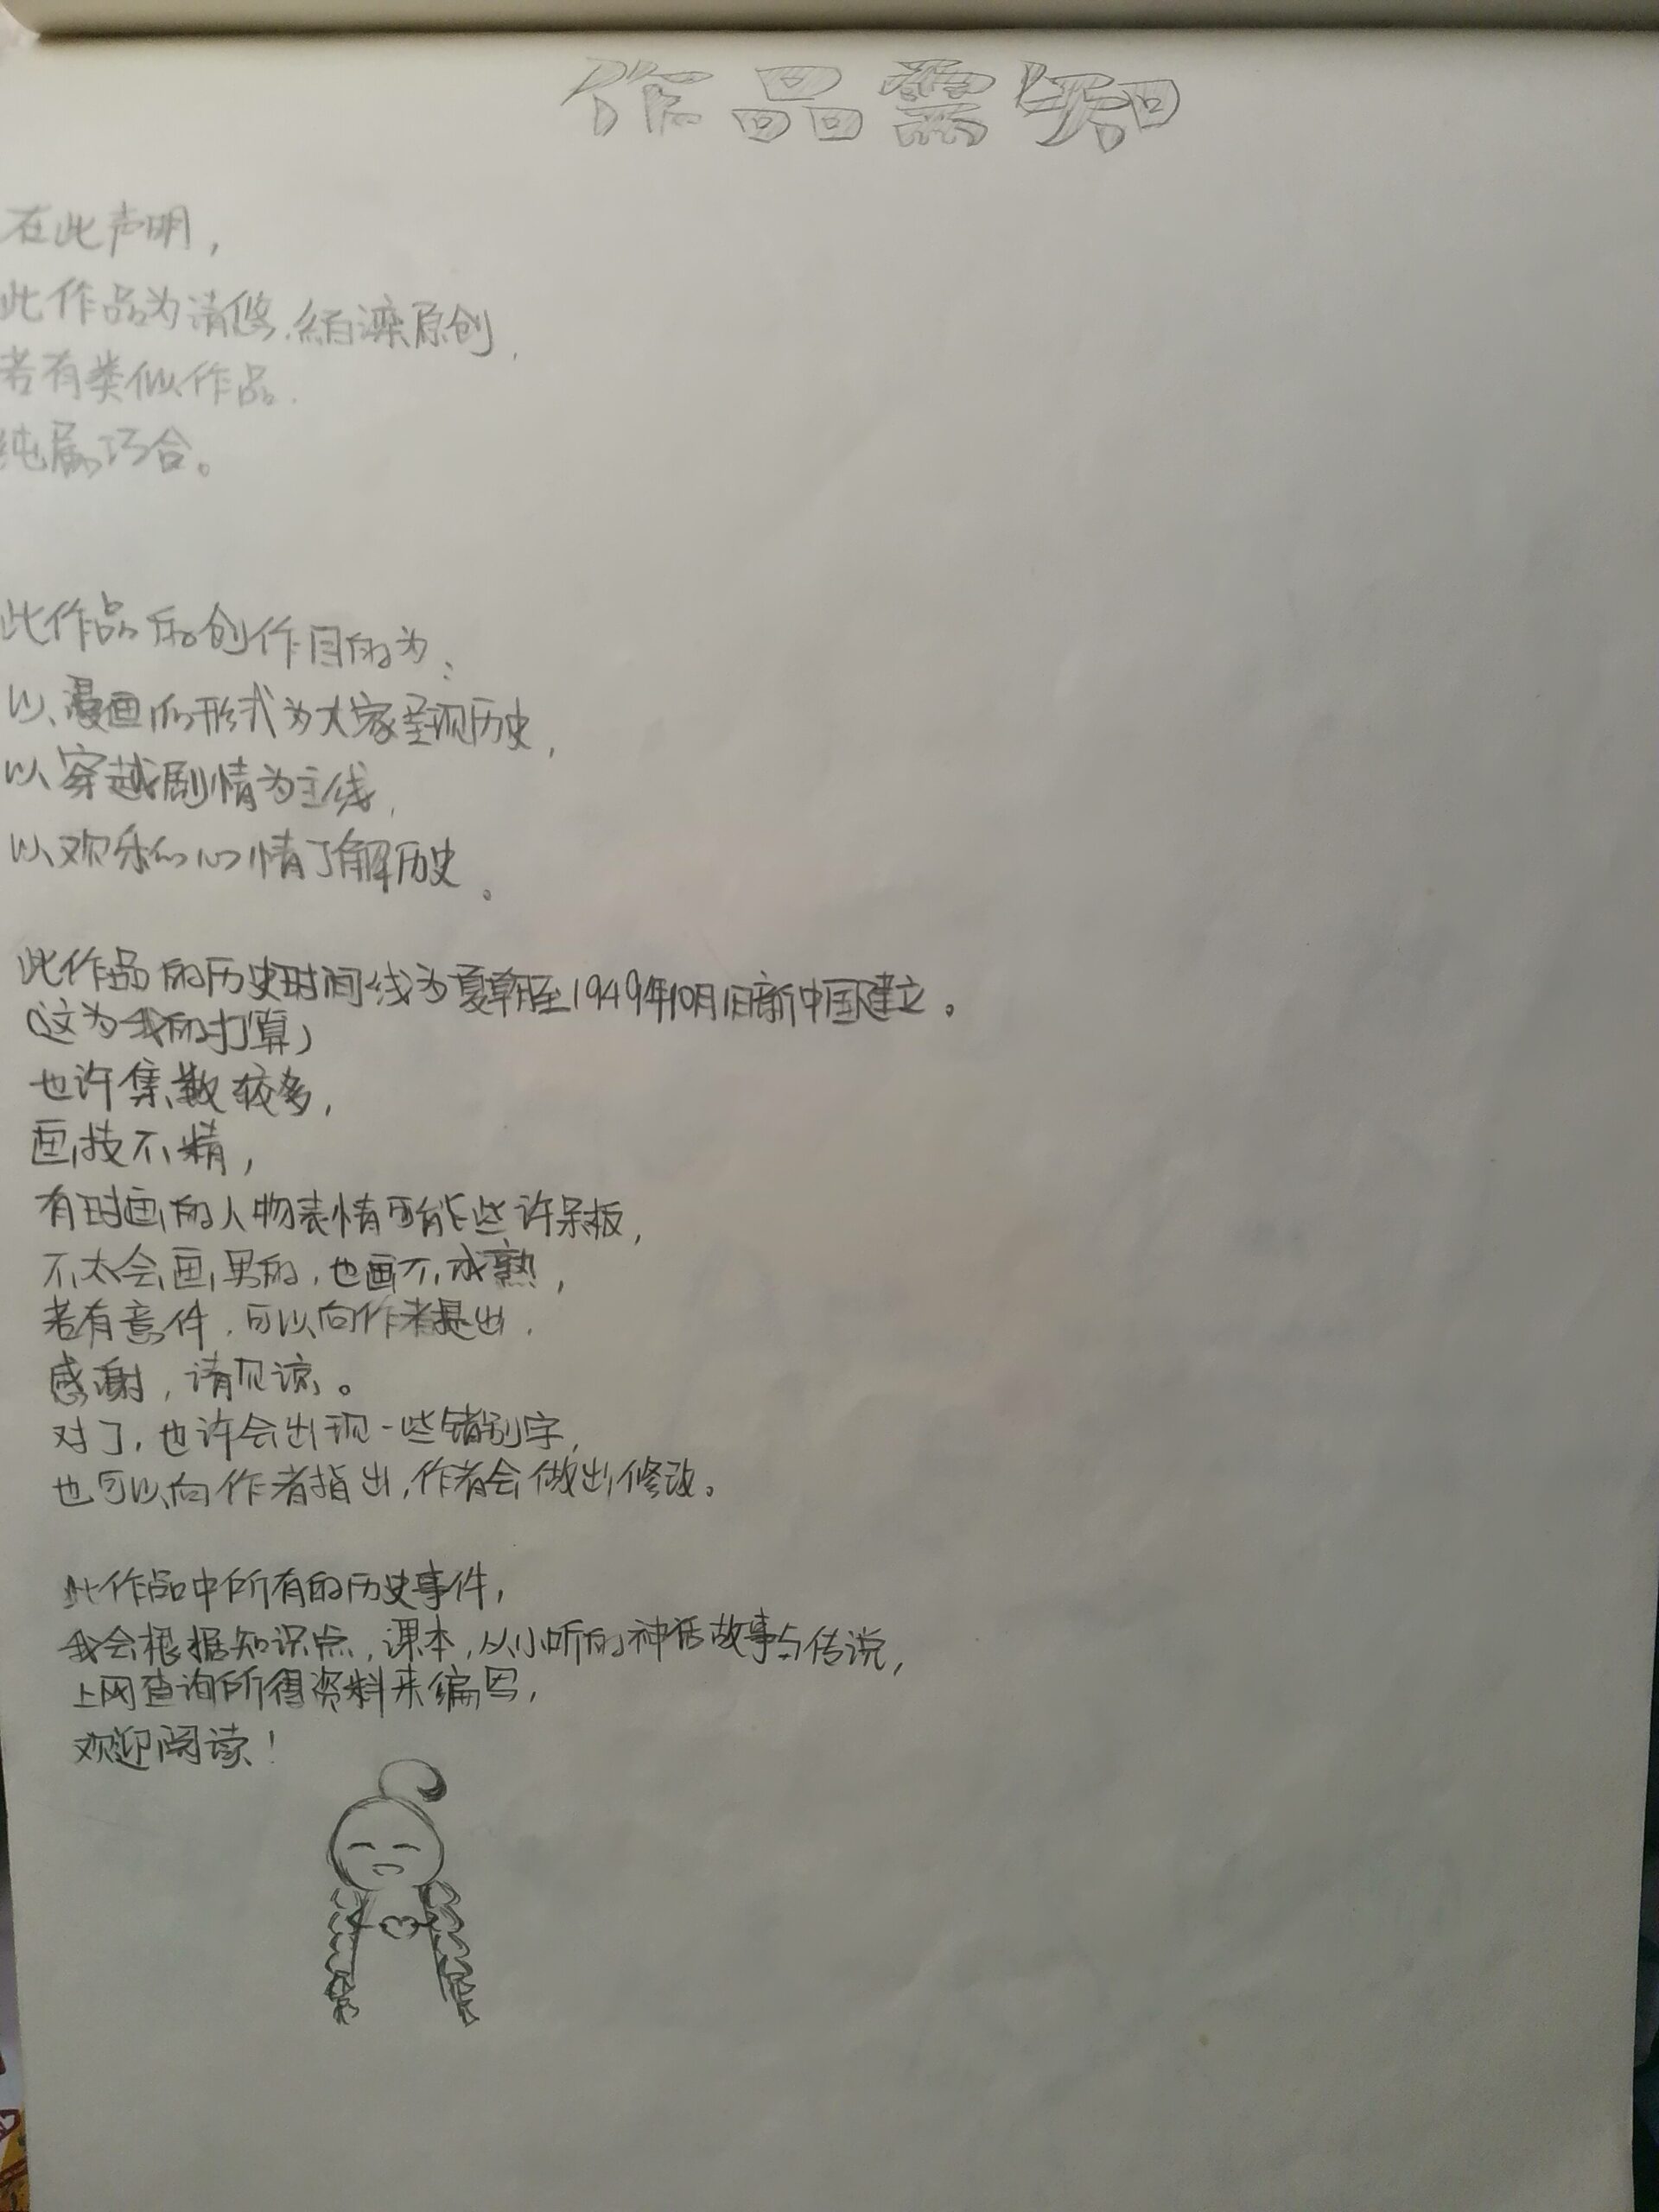 作品需知
在此声明，
此作品为清悠.絔滦原创，
若有类似作品.
纯属巧合。
此作品和创作目的为：
以漫画的形式为大家呈现历史，
以穿越剧情为主线，
以欢乐的心情了解历史。
此作品的历史时间线为夏朝至1949年10月1日新中国建立。
（这为我的打算）
也许集数较多，
画技不精，
有时画的人物表情可能些许呆板，
不太会画男的，也画不成熟，
若有意件，可以向作者提出，
感谢，请见谅。
对了，也许会出现一些错别字，
也可以向作者指出，作者会做出修改。
此作品中所有的历史事件，
我会根据知识点，课本，从小听的神话故事与传说，
上网查询所得资料来编写，
欢迎阅读！